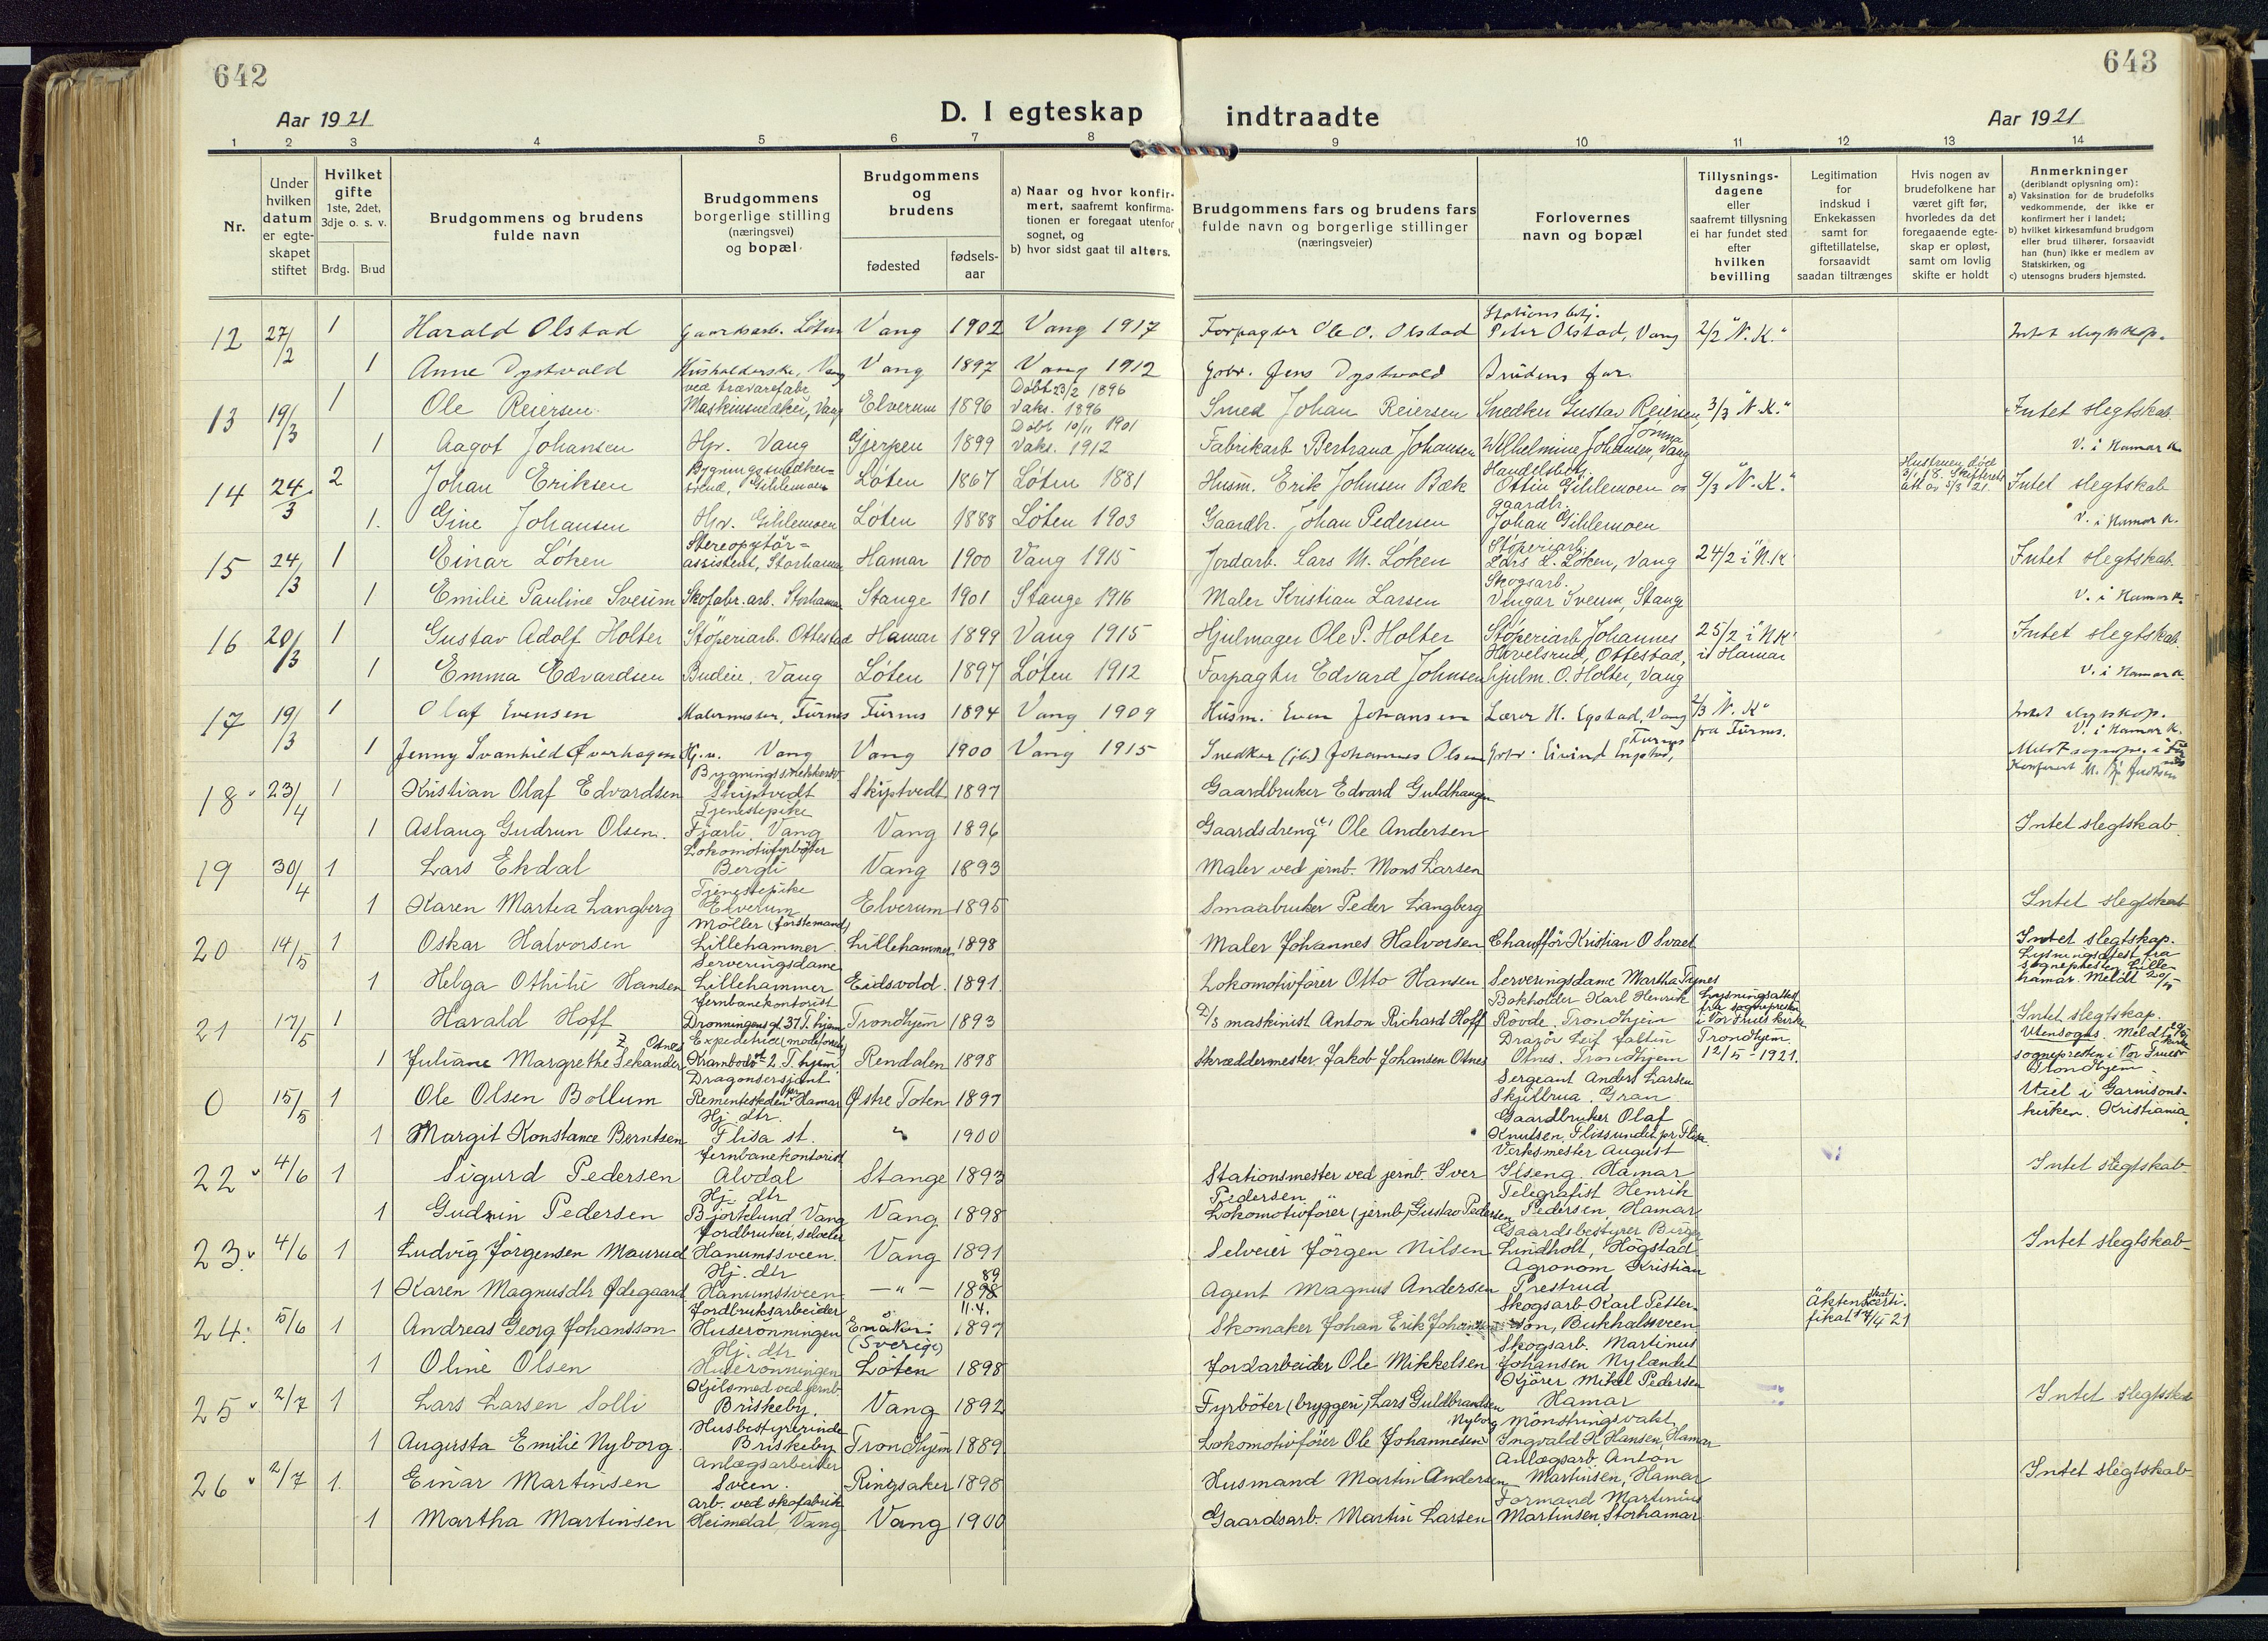 642
643
Aar 1921
D. I egteskap indtraadte
Aar 1921
1 2 3 4 5 6 7 8 9 10 11 12 13 14
Nr.
Under hvilken datum er egteskapet stiftet
Hvilket gifte 1ste, 2det, 3dje o. s. v.
Brdg. Brud
Brudgommens og brudens fulde navn
Brudgommens borgerlige stilling (næringsvei) og bopæl.
Brudgommens og brudens
fødested
fødsels-aar
a) Naar og hvor konfirmert, saafremt konfirmationen er foregaat utenfor sognet, og
b) hvor sidst gaat til alters.
Brudgommens fars og brudens fars fulde navn og borgerlige stillinger (næringsveier)
Forlovernes navn og bopæl
Tillysnings-dagene eller saafremt tillysning ei har fundet sted efter hvilken bevilling
Legitimation for indskud i Enkekassen samt for giftetillatelse, forsaavidt saadan tiltrænges
Hvis nogen av brudefolkene har været gift før, hvorledes da det foregaaende egteskap er opløst, samt om lovlig skifte er holdt
Anmerkninger
(deriblandt oplysning om):
a) Vaksination for de brudefolks vedkommende, der ikke er konfirmert her i landet;
b) hvilket kirkesamfund brudgom eller brud tilhører, forsaavidt han (hun) ikke er medlem av Statskirken, og
c) utensogns bruders hjemsted.
12 27/2 1 Harald Olstad Gaardsarb. Løten Vang 1902 Vang 1917 Forpagter Ole O. Olstad Stationsbetj. Peter Olstad, Vang 2/2 "N. K." Intet slegtskap.
1 Anne Dystvold Husholderske, Vang Vang 1897 Vang 1912 Gbr. Jens Dystvold Brudens far.
13 19/3 1 Ole Reiersen ved trævarefabr. Maskinsnedker, Vang Elverum 1896 Døbt 23/2 1896 Vaks. 1896 Smed Johan Reiersen Snedker Gustav Reiersen, 3/3 "N. K." Intet slegtskab
1 Aagot Johansen Hjv. Vang Gjerpen 1899 Døbt 10/11 1901 Vaks. 1912 Fabrikarb Bertrand Johansen Wilhelmine Johansen, Vang V. i Hamar K.
14 24/3 2 Johan Eriksen Bygningssnedker-svend, Gihlemoen Løten 1867 Løten 1881 Husm. Erik Johnsen Bæk Handelsbetj. Ottin Gihlemoen og 9/3 "N. K." Hustruen død 3/1 18. Skifteretsatt. av 5/3 21. Intet slegtskab
1. Gine Johansen Hjv. Gihlemoen Løten 1888 Løten 1903 Gaardbr. Johan Pedersen gaardbr. Johan Gihlemoen V. i Hamar K.
15 24/3 1 Einar Løken Stereopytör-assistent, Storhamar Hamar 1900 Vang 1915 Jordarb. Lars M. Løken Støperiarb. Lars L. Løken, Vang 24/2 i "N. K Intet slegtskab.
1 Emilie Pauline Sveum Skofabr. arb. Storhamar Stange 1901 Stange 1916 Maler Kristian Larsen Skogsarb. Vingar Sveum, Stange V. i Hamar K.
16 20/3 1 Gustav Adolf Holter Støperiarb. Ottestad Hamar 1899 Vang 1915 Hjulmager Ole P. Holter Støperiarb. Johannes Havelsrud, Ottestad, 25/2 i "N K" i Hamar Intet slegtskab.
1 Emma Edvardsen Budeie, Vang Løten 1897 Løten 1912 Forpagter Edvard Johnsen hjulm. O. Holter, Vang V. i Hamar K.
17 19/3 1 Olaf Evensen Malermester, Furnes Furnes 1894 Vang 1909 Husm. Even Johansen Lærer H. Egstad, Vang 2/3 "N. K" fra Furnes. Intet slegtskap. V. i Hamar K.
1 Jenny Svanhild Øverhagen Hj. v. Vang Vang 1900 Vang 1915 Snedker Johannes Olsen Gbr. Eivind Engstad, Furnes
18 23/4 1 Kristian Olaf Edvardsen Bygningssnekkersv. Skiptvedt Skiptvedt 1897 Gaardbruker Edvard Guldhaugen
1 Aslaug Gudrun Olsen. Tjenestepike Fjærli, Vang Vang 1896 Gaardsdreng Ole Andersen Intet slegtskab
19 30/4 1 Lars Ekdal Lokomotivfyrbøter Bergli Vang 1893 Maler ved jernb. Mons Larsen
1 Karen Martea Langberg Tjenestepike Elverum Elverum 1895 Smaabruker Peder Langberg Intet slegtskab
20 14/5 1 Oskar Halvorsen Møller (førstemand) Lillehammer Lillehammer 1898 Maler Johannes Halvorsen Chauffør Kristian O Svael Intet slegtskap. Lysningsattest fra sognepresten Lillehamar. Meldt 20/5
1 Helga Othilie Hansen Serveringsdame Lillehammer Eidsvold 1891. Lokomotivfører Otto Hansen Serveringsdame Martha Tynes
21 17/5 1 Harald Hoff Jernbanekontorist Dronningensgt. 37 T.hjem Trondhjem 1893 maskinist Anton Richard Hoff Bokholder Karl Henrik Røvde Trondhjem Lysningsattest fra sognepresten i Vor Frues kirke Trondhjem 12/5 - 1921. Intet slegtskap. Utensogns. Meldt sognepresten i Vor Frues kirke Trondhjem
1 Juliane Margrethe Z. Otnes Expeditrice (modeforretn.) Krambodgt 2. T.hjem Rendalen 1898 Skræddermester Jakob Johansen Otnes Leif Otnes. Trondhjem
0 15/5 1 Ole Olsen Bollum Dragonsersjant Hamar Østre Toten 1897 Sergeant Anders Larsen Skjelbrua. Gran Viet i Garnisonskirken. Kristiania
1 Margit Konstance Berntsen Hj. dtr. Flisa st. " 1900 Gaardbruker Olaf Knutsen, Flissundet pr. Flisa
22 4/6 1 Sigurd Pedersen Jernbanekontorist Alvdal Stange 1893 Stationsmester ved jernb. Iver Pedersen Verksmester August Ilseng. Hamar Intet slegtskab
1 Gudrun Pedersen Hj. dtr Bjørklund, Vang Vang 1898 Lokomotivfører (jernb.) Gustav Pedersen Telegrafist Henrik Pedersen, Hamar
23. 4/6 1 Ludvig Jørgensen Maurud Jordbruker, selveier Hanumssveen. Vang 1891 Selveier Jørgen Nilsen Gaardsbestyrer Birger Lindholt, Høgstad Intet slegtskab
1 Karen Magnusdtr Ødegaard Hj. dtr Hanumssveen — " — 1898 89 Agent Magnus Andersen Agronom Kristian Prestrud
24. 5/6 1 Andreas Georg Johansson Jordbruksarbeider Huserønningen (Sverige) 11.4. 1897 Skomaker Johan Erik Skogsarb. Karl Petterson, Bukhalssveen Äktenskabscertifikat 17/5 21
1 Oline Olsen Hj. dtr Huserønningen Løten 1898 Jordarbeider Ole Mikkelsen Skogsarb. Martinus Johansen Nylændet
25 2/7 1 Lars Larsen Solli Kjelsmed ved jernb. Briskeby. Vang 1892 Fyrbøter (bryggeri) Lars Guldbrandsen Kjører Mikel Pedersen Hamar Intet slegtskab
1 Augusta Emilie Nyborg Husbestyrerinde Briskeby Trondhjem 1889 Lokomotivfører Ole Johannesen Nyborg Mønstringsvakt Ingvald H Hansen, Hamar
26 2/7 1. Einar Martinsen Anlægsarbeider Sveen. Ringsaker 1898 Husmand Martin Andersen Anlægsarb Anton Martinsen, Hamar Intet slegtskab
1 Martha Martinsen Arb. ved skofabrik Heimdal, Vang Vang 1900 Gaardsarb. Martin Larsen Formand Martinius Martinsen, Storhamar